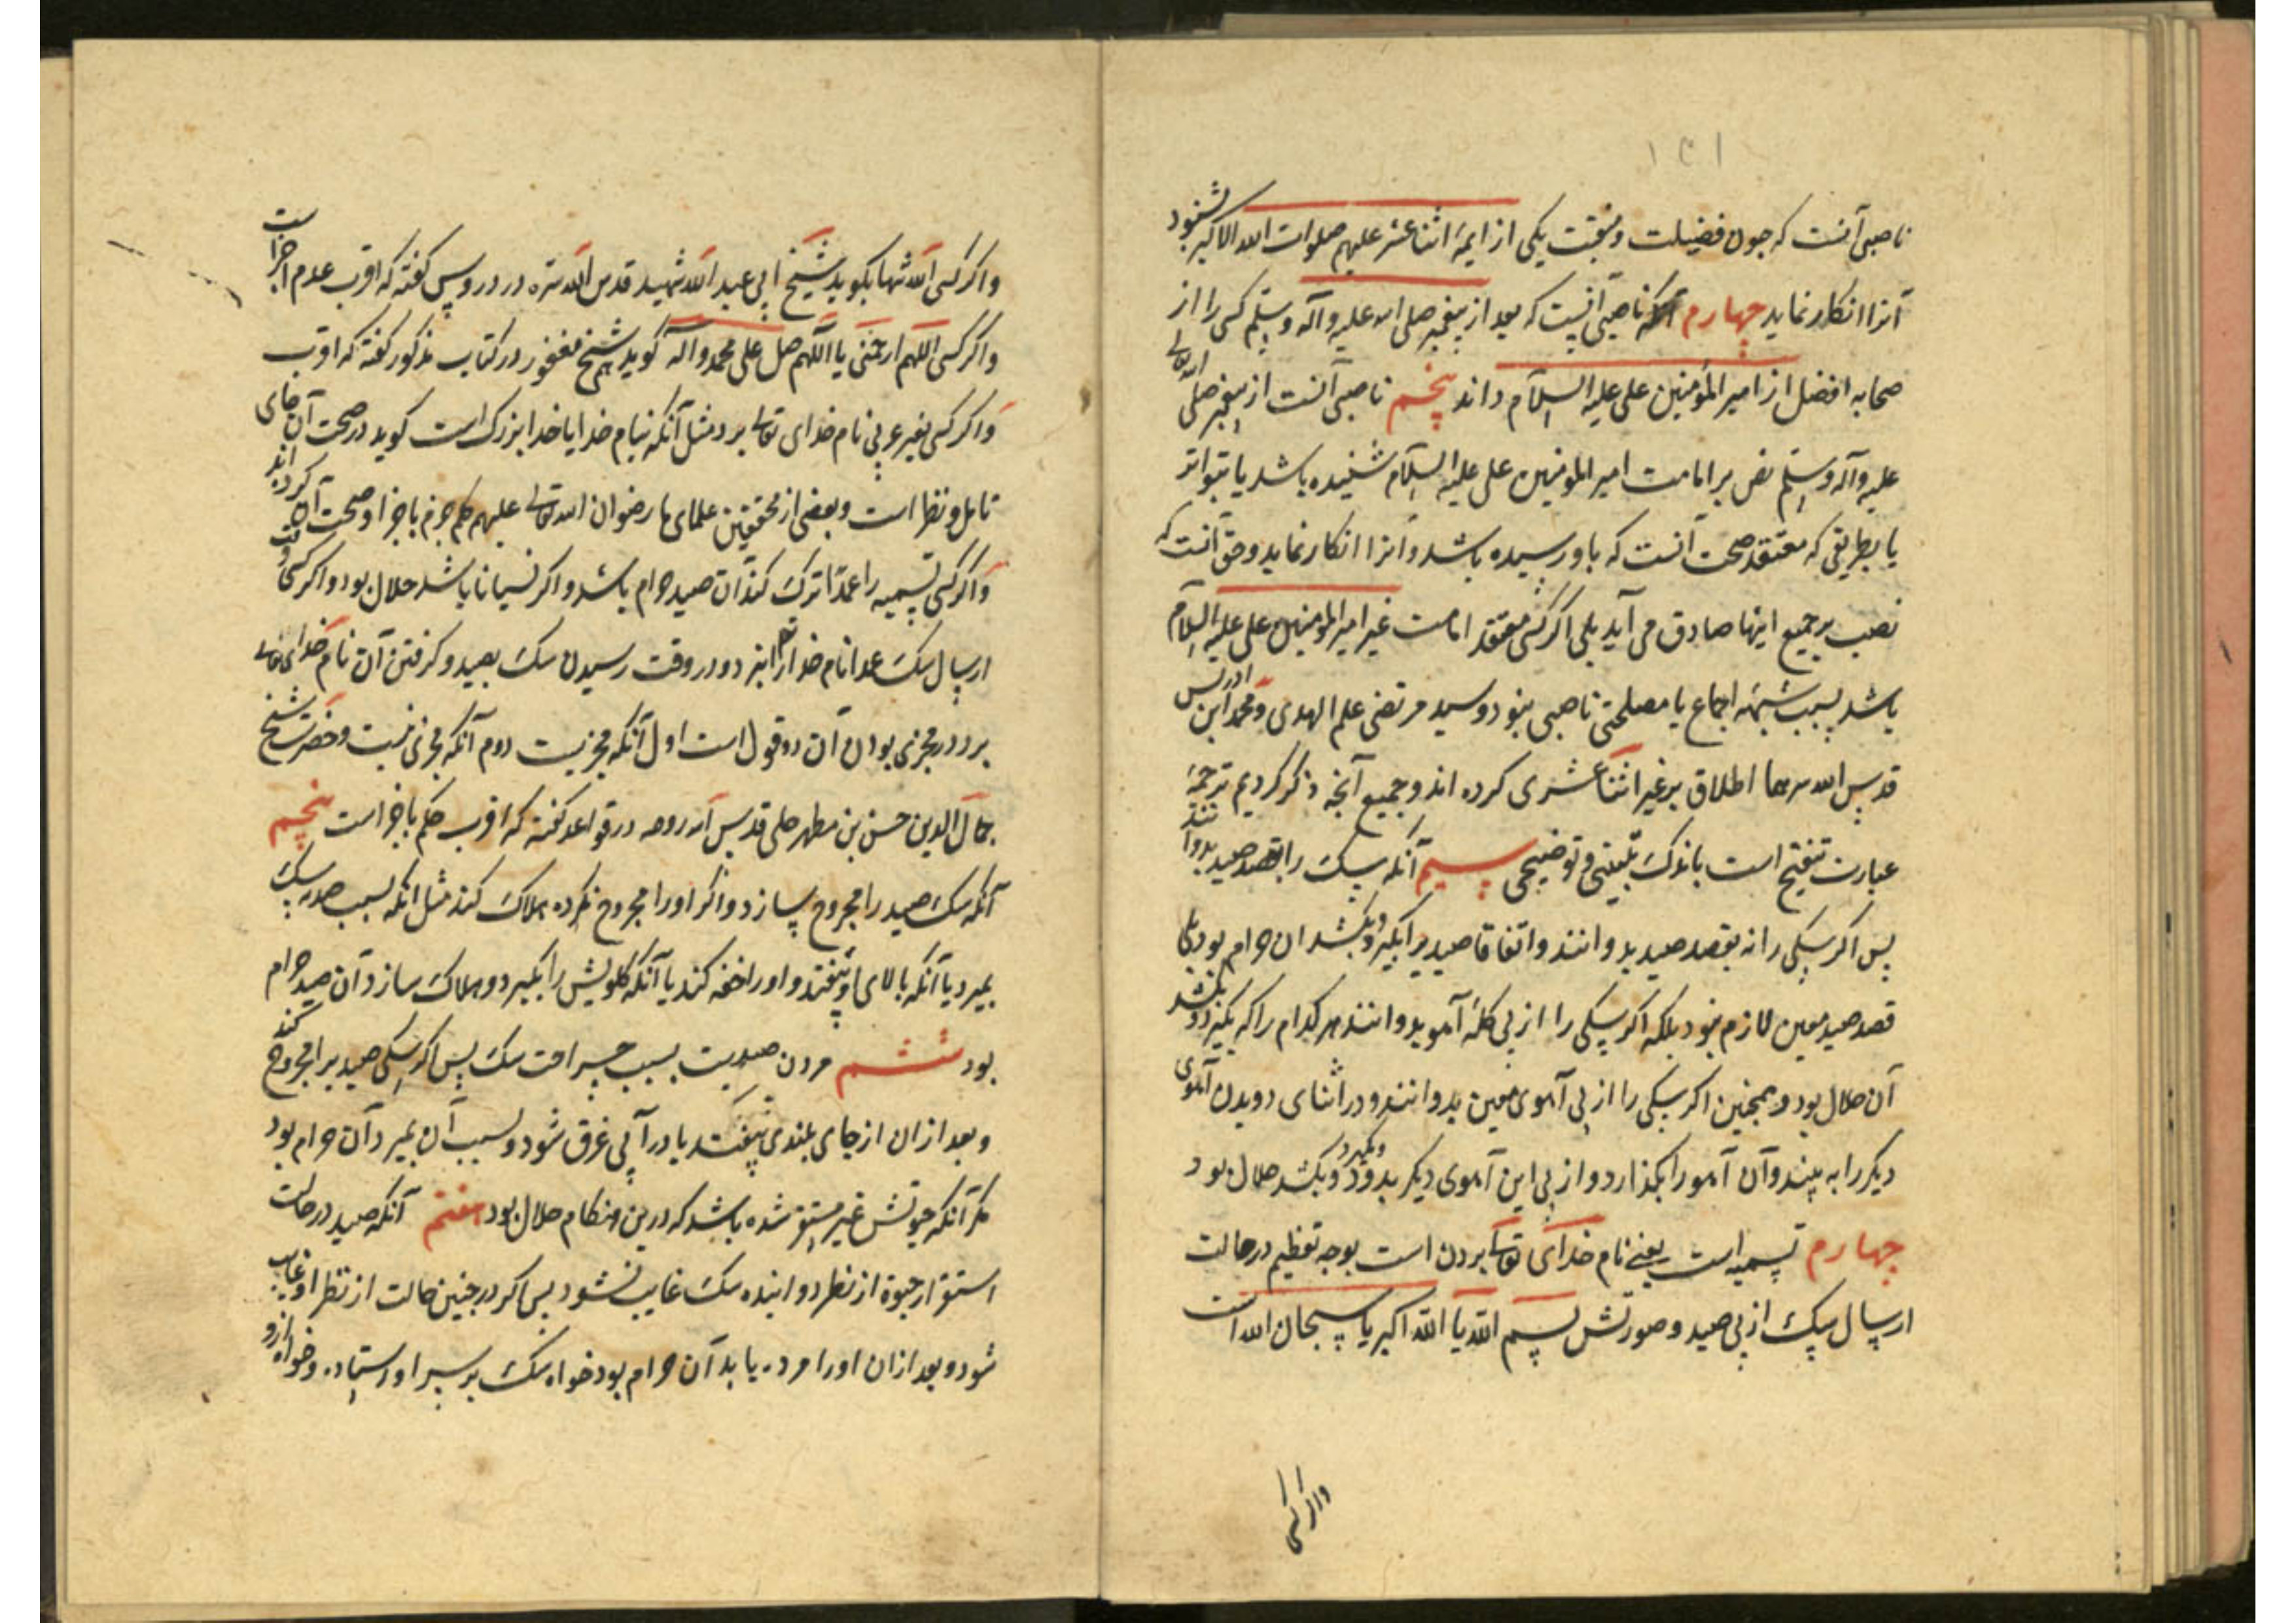 ۱۴۱
ناصبی آنست که چون فضیلت و منقبت یکی از ایمهٔ اثنا عشر علیهم صلوات الله الاکبر بشنود
آنرا انکار نماید چهارم آنکه ناصبی آنست که بعد از پیغمبر صلی الله علیه و آله وسلم کسی را از
صحابه افضل از امیر المؤمنین علی علیه السلام داند پنجم ناصبی آنست از پیغمبر صلی الله تعالی
علیه وآله وسلم نص بر امامت امیر المومنین علی علیه السلام شنیده باشد یا بتواتر
یا بطریقی که معتقد صحت آنست که باو رسیده باشد و آنرا انکار نماید و حق آنست که
نصب بر جمیع اینها صادق می آید بلی اگر کسی معتقد امامت غیر امیر المومنین علی علیه السلام
باشد بسبب شبههٔ اجماع یا مصلحتی ناصبی نبود و سید مرتضی علم الهدی و محمد ابن ادریس
قدس الله سرهما اطلاق بر غیر اثنا عشری کرده اند و جمیع آنچه ذکر کردیم ترجمهٔ
عبارت تنقیح است باندک تبیینی و توضیحی سیم آنکه سک را بقصد صید بدوانند
پس اکر سکی را نه بقصد صید بدوانند و اتفاقا صید یرا بکیرد و بکشد ان حرام بود بلی
قصد صید معین لازم نبود بلکه اکر سکی را از پی کلهٔ آهو بدوانند هر کدام را که بکیرد و بکشد
آن حلال بود و همچنین اکر سکی را از پی آهوی معین بدوانند و در اثنای دویدن آهوی
دیکر را به بیند و آن آهو را بکذارد و از پی این آهوی دیکر بدود و بکیرد و بکشد حلال بود
چهارم تسمیه است یعنی نام خدای تعالی بردن است بوجه تعظیم در حالت
ارسال سک از پی صید و صورتش بسم الله یا الله اکبر یا سبحان الله است
واکر کسی
واکر کسی الله تنها بکوید شیخ ابی عبد الله شهید قدس الله سره در دروس کفته که اقرب عدم اجزا است
واکر کسی اللهم ارحمنی یا اللهم صل علی محمد و آله کوید هم شیخ مغفور در کتاب مذکور کفته که اقرب
واکر کسی بغیر عربی نام خدای تعالی برد مثل آنکه بنام خدا یا خدا بزرک است کوید در صحت آن جای
تامل و نظر است و بعضی از محققین علمای ما رضوان الله تعالی علیهم حکم جزم باجزا و صحت آن کرده اند
واکر کسی تسمیه را عمدا ترک کند آن صید حرام باشد و اکر نسیانا باشد حلال بود و اکر کسی وقت
ارسال سک عمدا نام خدا را نبرد و در وقت رسیدن سک بصید و کرفتن آن نام خدای تعالی
برد در مجزی بودن آن دو قول است اول آنکه مجزیست دوم آنکه مجزی نیست و حضرت شیخ
جمال الدین حسن بن مطهر حلی قدس الله روحه در قواعد کفته که اقرب حکم باجزا است پنجم
آنکه سک صید را مجروح سازد و اکر او را مجروح نکرده هلاک کند مثل انکه بسبب صدمه سک
بمیرد یا آنکه بالای او بیفتد و او را خفه کند یا آنکه کلویش را بکیرد و هلاک سازد آن صید حرام
بود ششم مردن صیدیست بسبب جراحت سک پس اکر سکی صید یرا مجروح کند
و بعد از ان از جای بلندی بیفتد یا در آبی غرق شود و بسبب آن بمیرد آن حرام بود
مکر آنکه حیوتش غیر مستقر شده باشد که درین هنکام حلال بود هفتم آنکه صید در حالت
استقرار حیوة از نظر دواننده سک غایب نشود پس اکر در چنین حالت از نظر او غایب
شود و بعد از ان او را مرده یابد آن حرام بود خواه سک بر سر او استاده و خواه ازو